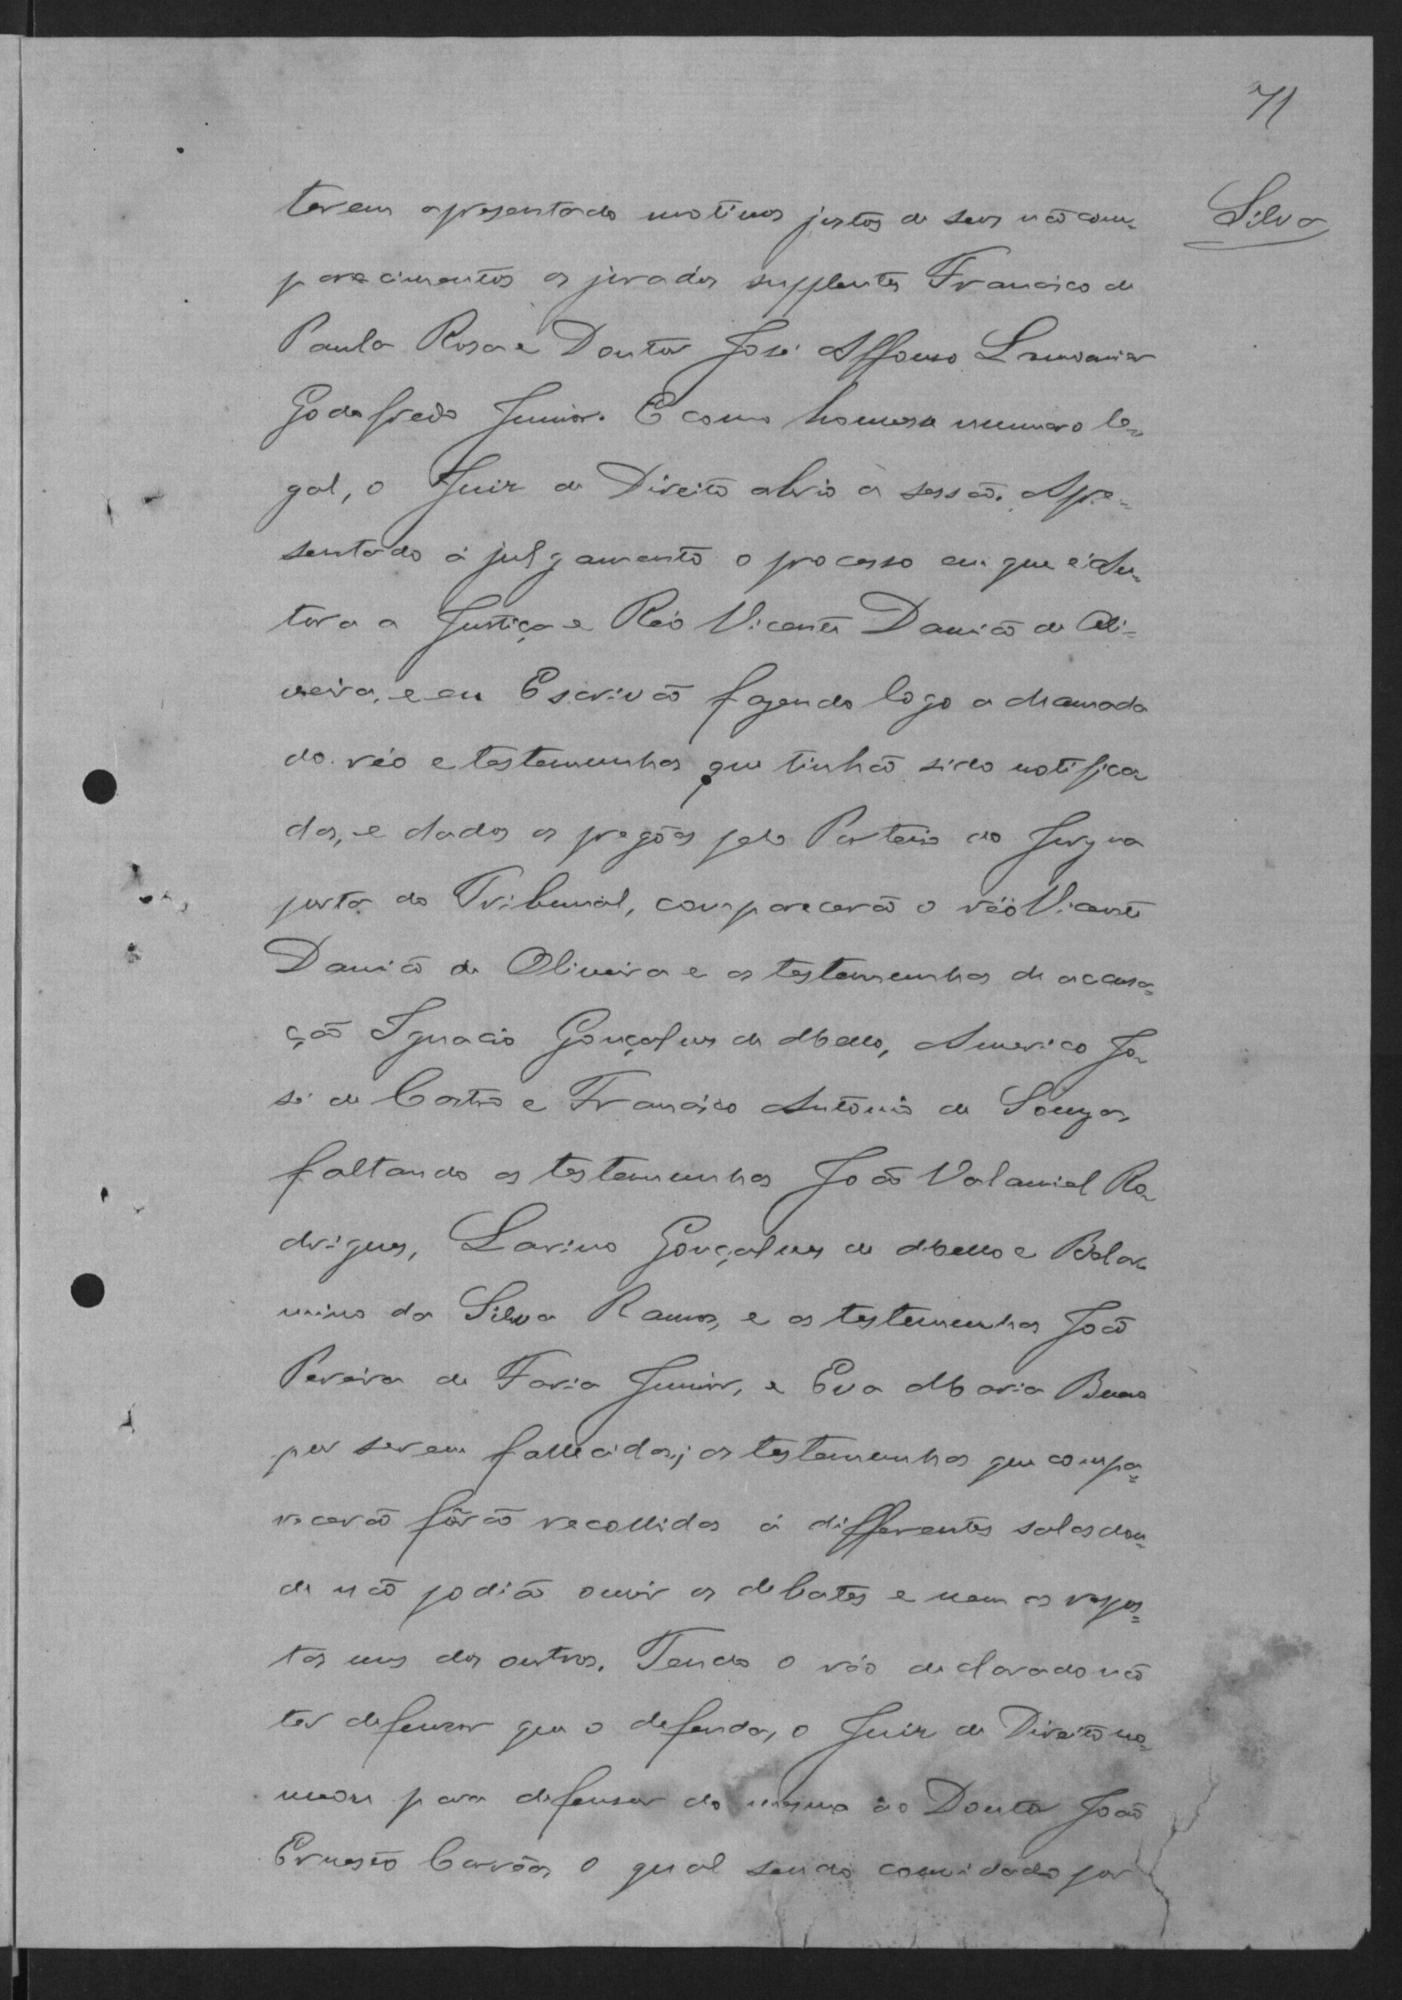 71
Silva
terem apresentado motivos justos de seus não com-
parecimentos os jurados supplentes Francisco de
Paula Rosa e Doutor José Affonso Lamounier
Godofredo Junior. E como houvesse numero le-
gal, o Juiz de Direito abrio a sessão. Apre-
sentado á julgamento o processo em que é Au-
tora a Justiça e Réo Vicente Damião de Oli-
veira, e eu Escrivão fazendo logo a chamada
do réo e testemunhas que tinhão sido notifica
dos, e dados os pregões pelo Porteiro do Jury na
porta do Tribunal, comparecerão o réo Vicente
Damião de Oliveira e as testemunhas de accusa-
ção Ignacio Gonçalves de Mello, Americo Jo-
sé de Castro e Francisco Antonio de Souza,
faltando as testemunhas João Valamiel Ro-
drigues, Larino Gonçalves de Mello e Belar-
mino da Silva Ramos, e as testemunhas João
Pereira de Faria Junior, e Eva Maria Bueno
por serem fallecidos; as testemunhas que compa-
recerão fôrão recolhidas á differentes salas don-
de não podião ouvir os debates e nem as respos-
tas uns dos outros. Tendo o réo declarado não
ter defensor que o defenda, o Juiz de Direito no-
meou para defensor do mesmo ao Doutor João
Ernesto o qual sendo convidado por